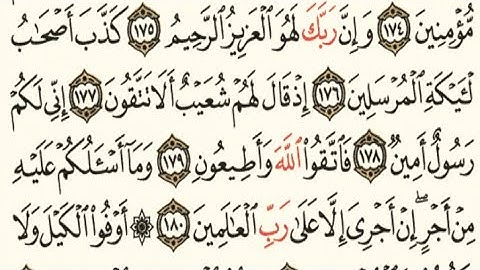 مُّؤْمِنِينَ ١٧٤ وَإِنَّ رَبَّكَ لَهُوَ ٱلْعَزِيزُ ٱلرَّحِيمُ ١٧٥ كَذَّبَ أَصْحَٰبُ
لْـَٔيْكَةِ ٱلْمُرْسَلِينَ ١٧٦ إِذْ قَالَ لَهُمْ شُعَيْبٌ أَلَا تَتَّقُونَ ١٧٧ إِنِّى لَكُمْ
رَسُولٌ أَمِينٌ ١٧٨ فَٱتَّقُوا۟ ٱللَّهَ وَأَطِيعُونِ ١٧٩ وَمَآ أَسْـَٔلُكُمْ عَلَيْهِ
مِنْ أَجْرٍ ۖ إِنْ أَجْرِىَ إِلَّا عَلَىٰ رَبِّ ٱلْعَٰلَمِينَ ١٨٠ ۞ أَوْفُوا۟ ٱلْكَيْلَ وَلَا